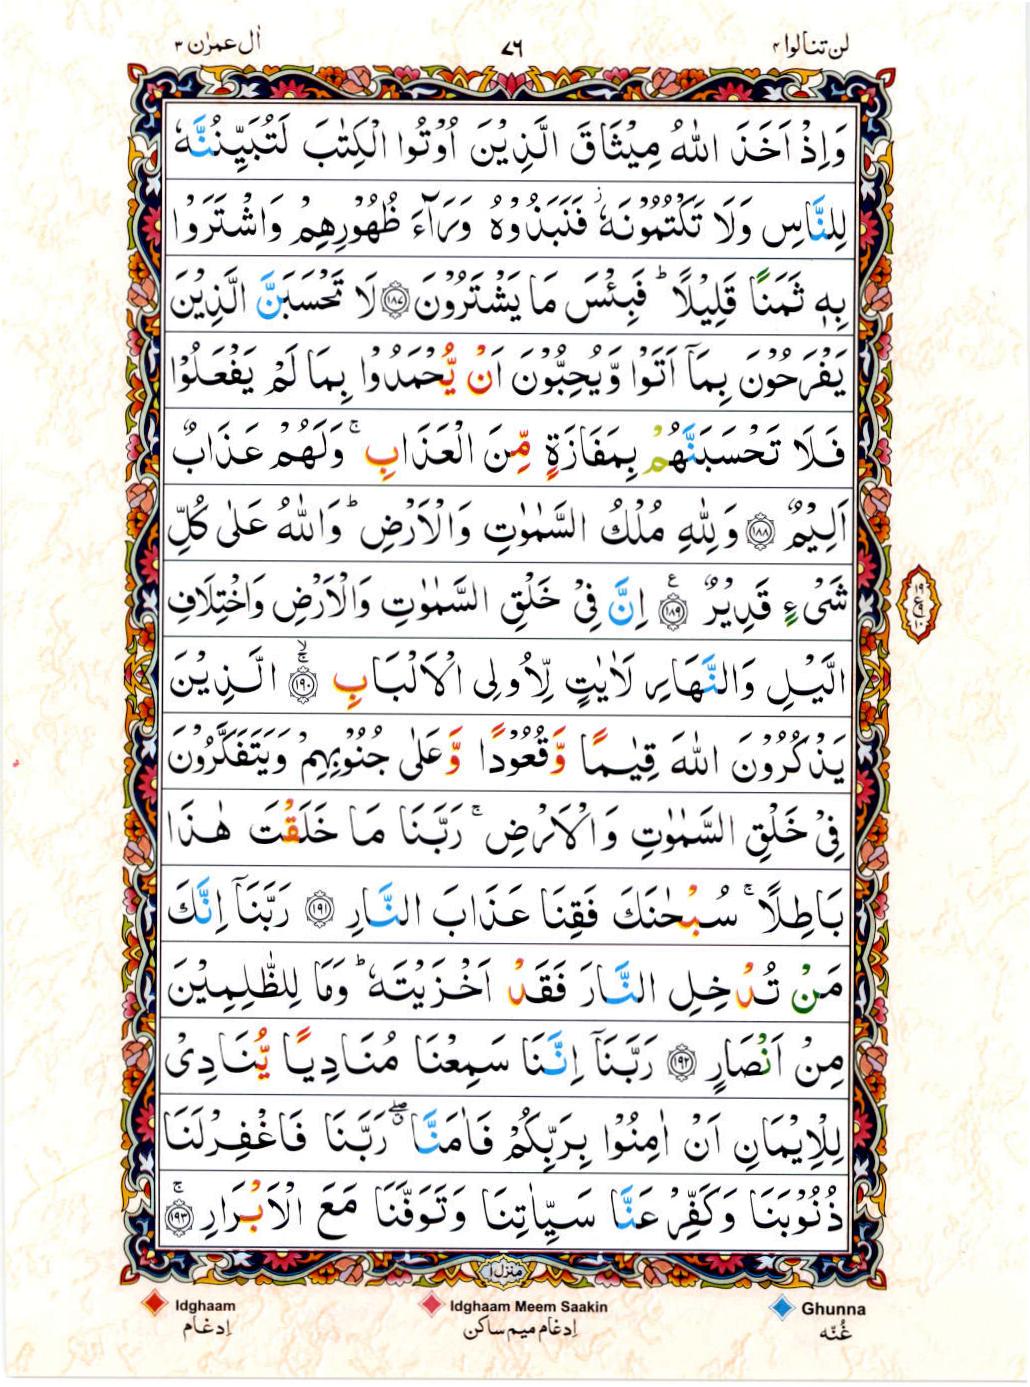 لن تنالوا ۴
۷۶
اٰل عمرٰن ۳
وَاِذْ اَخَذَ اللّٰهُ مِيْثَاقَ الَّذِيْنَ اُوْتُوا الْكِتٰبَ لَتُبَيِّنُنَّهٗ
لِلنَّاسِ وَلَا تَكْتُمُوْنَهٗ ز فَنَبَذُوْهُ وَرَآءَ ظُهُوْرِهِمْ وَاشْتَرَوْا
بِهٖ ثَمَنًا قَلِيْلًا ؕ فَبِئْسَ مَا يَشْتَرُوْنَ ﴿۱۸۷﴾ لَا تَحْسَبَنَّ الَّذِيْنَ
يَفْرَحُوْنَ بِمَآ اَتَوْا وَّيُحِبُّوْنَ اَنْ يُّحْمَدُوْا بِمَا لَمْ يَفْعَلُوْا
فَلَا تَحْسَبَنَّهُمْ بِمَفَازَةٍ مِّنَ الْعَذَابِ ۚ وَلَهُمْ عَذَابٌ
اَلِيْمٌ ﴿۱۸۸﴾ وَلِلّٰهِ مُلْكُ السَّمٰوٰتِ وَالْاَرْضِ ؕ وَاللّٰهُ عَلٰى كُلِّ
شَىْءٍ قَدِيْرٌ ﴿۱۸۹﴾ ع اِنَّ فِىْ خَلْقِ السَّمٰوٰتِ وَالْاَرْضِ وَاخْتِلَافِ
الَّيْلِ وَالنَّهَارِ لَاٰيٰتٍ لِّاُولِى الْاَلْبَابِ ﴿۱۹۰﴾ ۚۙ الَّذِيْنَ
يَذْكُرُوْنَ اللّٰهَ قِيٰمًا وَّقُعُوْدًا وَّعَلٰى جُنُوْبِهِمْ وَيَتَفَكَّرُوْنَ
فِىْ خَلْقِ السَّمٰوٰتِ وَالْاَرْضِ ۚ رَبَّنَا مَا خَلَقْتَ هٰذَا
بَاطِلًا ۚ سُبْحٰنَكَ فَقِنَا عَذَابَ النَّارِ ﴿۱۹۱﴾ رَبَّنَآ اِنَّكَ
مَنْ تُدْخِلِ النَّارَ فَقَدْ اَخْزَيْتَهٗ ؕ وَمَا لِلظّٰلِمِيْنَ
مِنْ اَنْصَارٍ ﴿۱۹۲﴾ رَبَّنَآ اِنَّنَا سَمِعْنَا مُنَادِيًا يُّنَادِىْ
لِلْاِيْمَانِ اَنْ اٰمِنُوْا بِرَبِّكُمْ فَاٰمَنَّا ۖق رَبَّنَا فَاغْفِرْ لَنَا
ذُنُوْبَنَا وَكَفِّرْ عَنَّا سَيِّاٰتِنَا وَتَوَفَّنَا مَعَ الْاَبْرَارِ ﴿۱۹۳﴾ ۚ
منزل ۱
Ghunna
غُنّه
Idghaam Meem Saakin
اِدغام میم ساکن
Idghaam
اِدغام